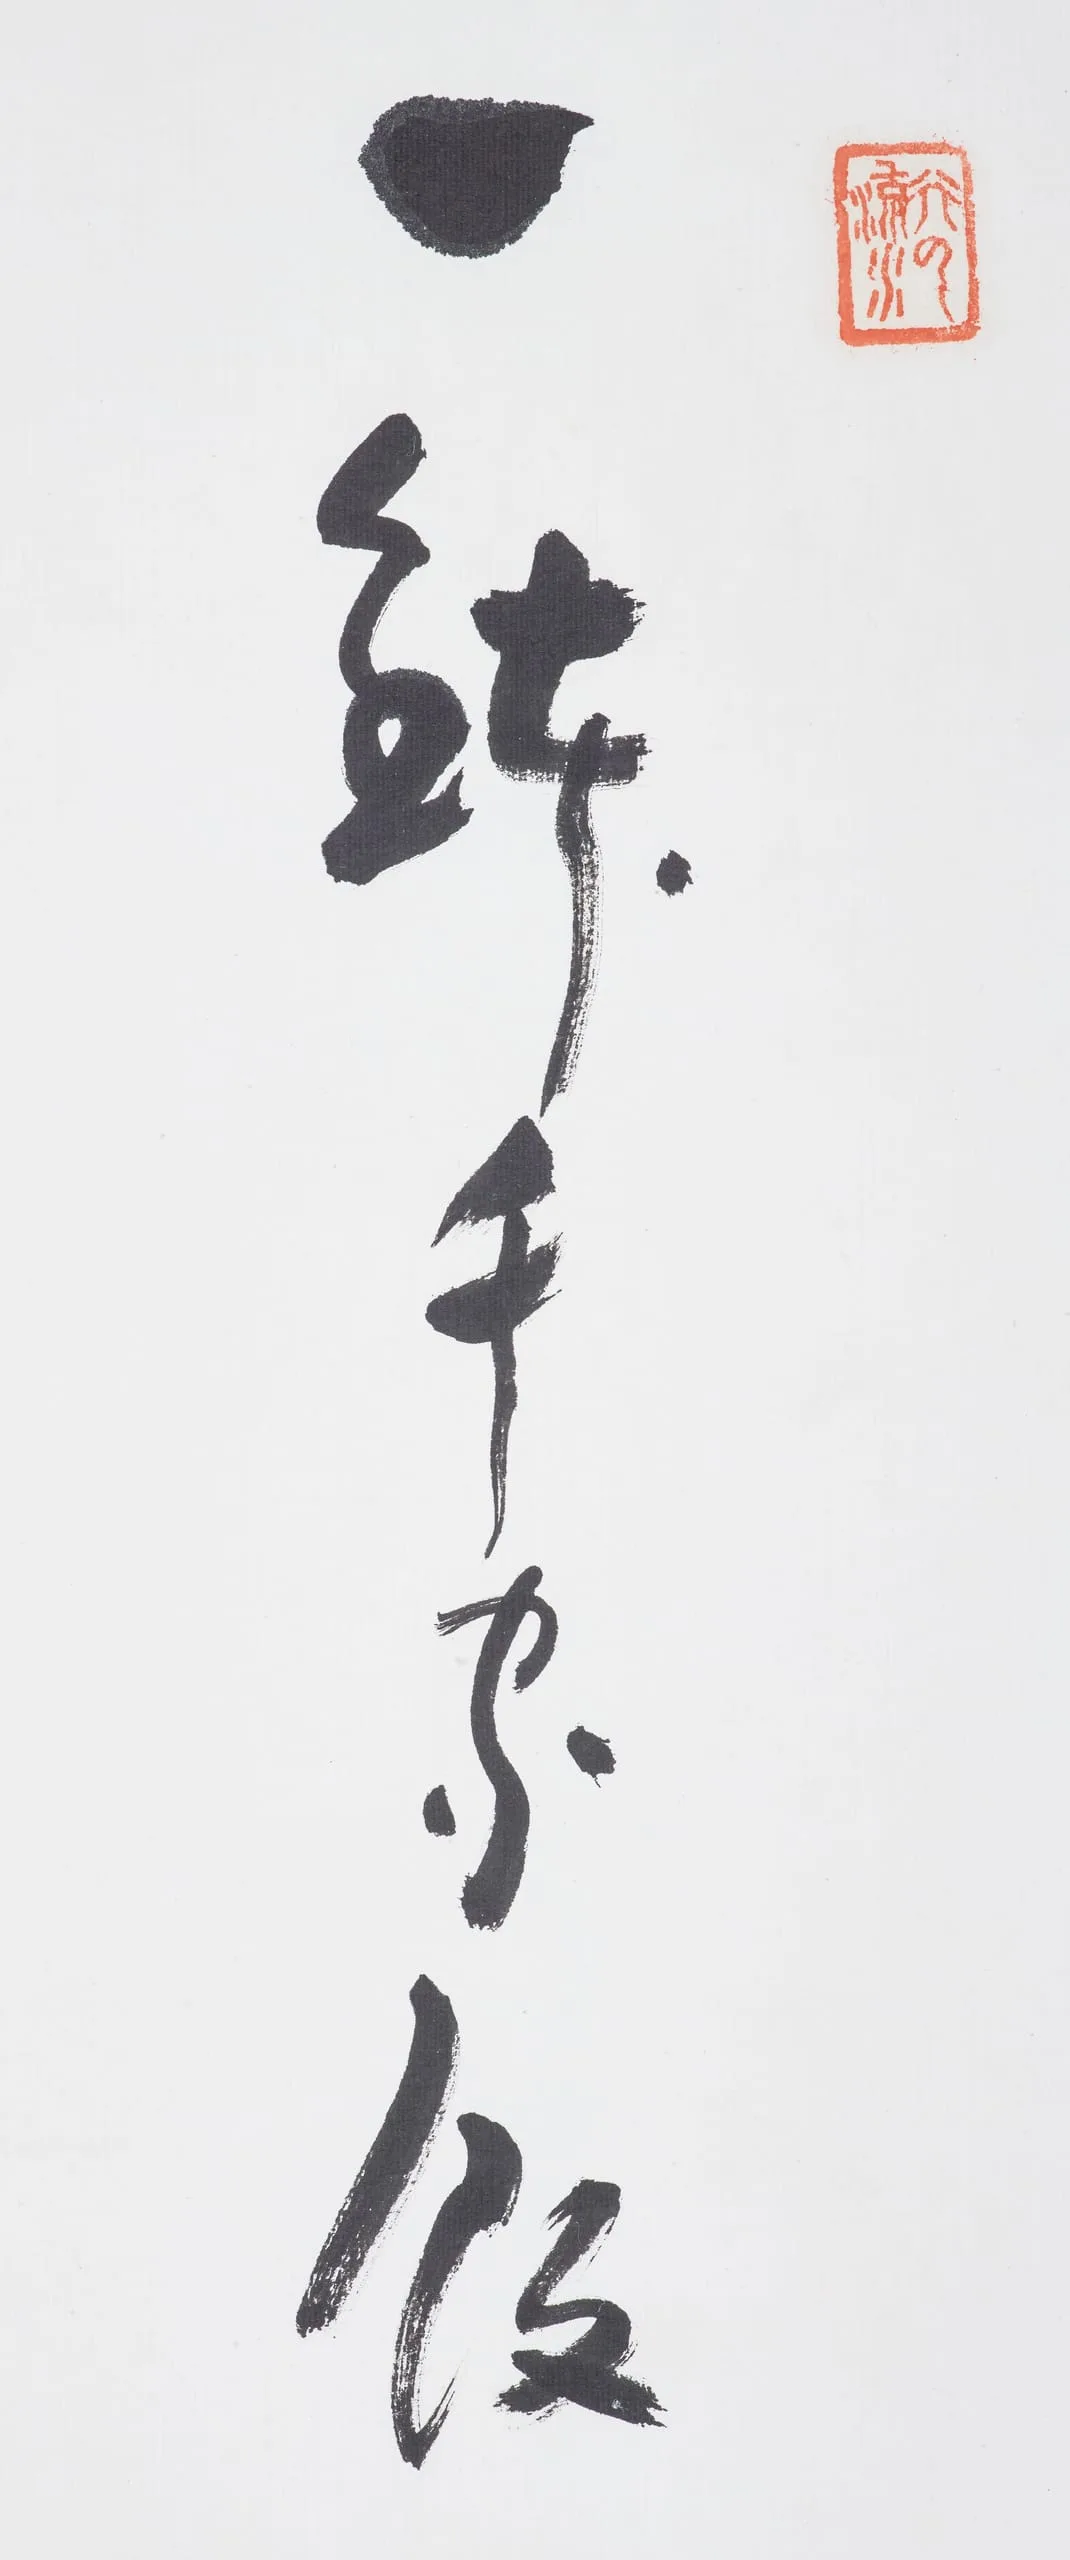 一鉢千家飯